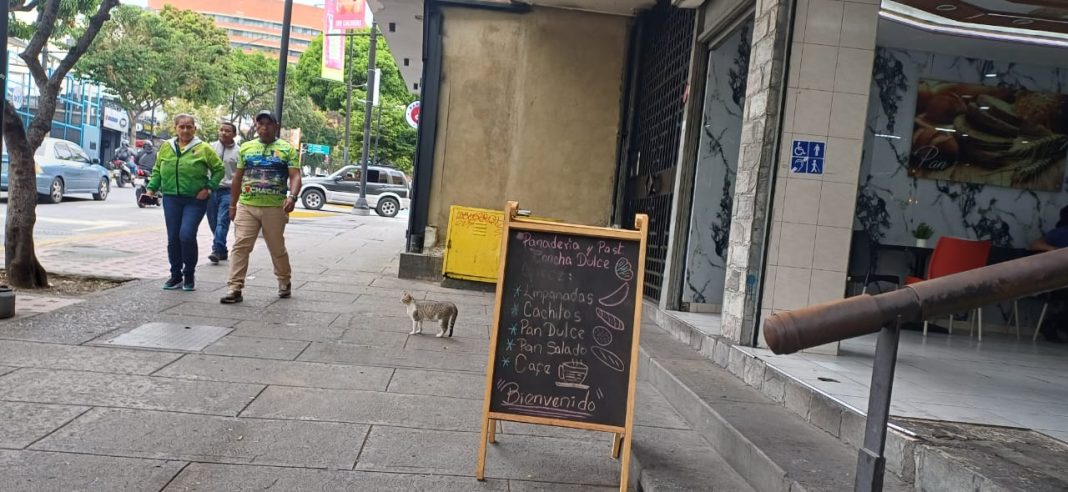 Panaderia y Past
Concha Dulce
Ofrece:
* Empanadas
* Cachitos
* Pan Dulce
* Pan Salado
* Cafe
"Bienvenido"
Pan
CHACAO